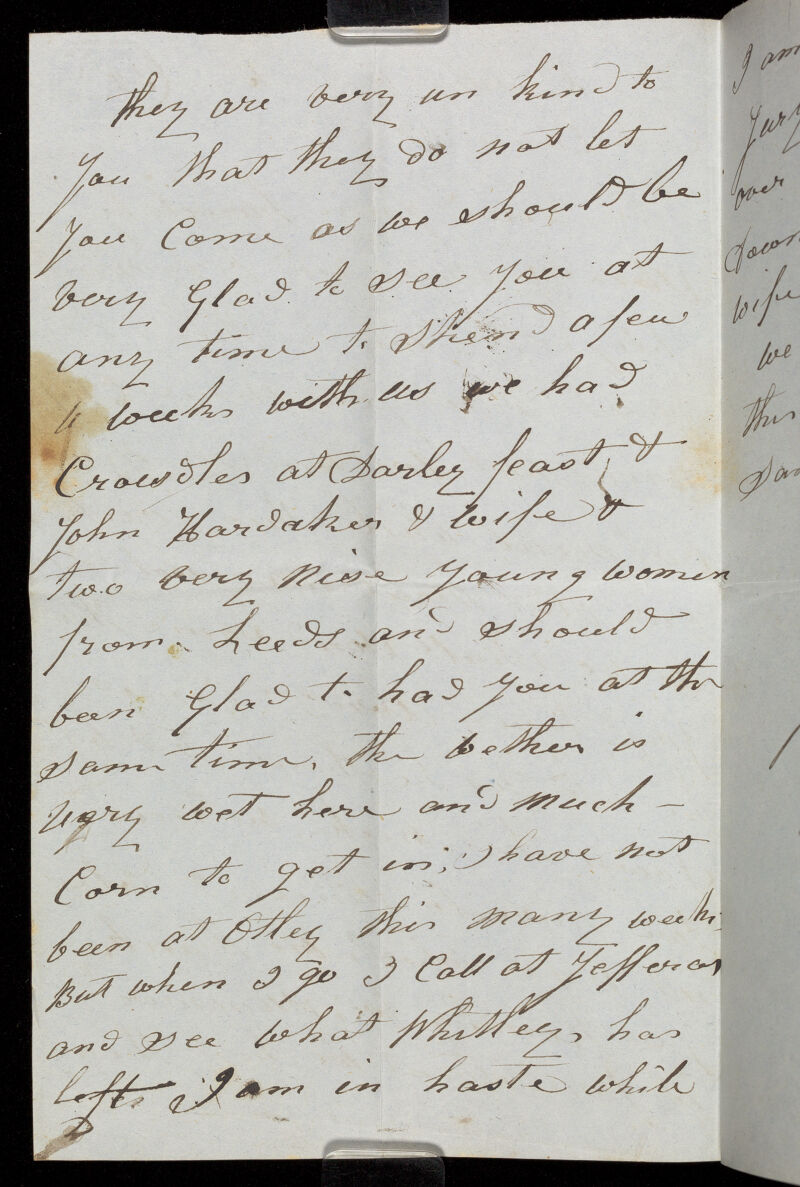 they are very un kind to
you that they do not let
you Come as we should be
very Glad to see you at
any time to spend a few
weeks with us we had
Crowdles at Darley feast &
John Hardaker & wife &
two very nise young women
from Leeds and should
been Glad to had you at the
same time. the wether is
very wet here and much
Corn to get in; I have not
been at Otley this many weeks
But when I go I Call at Jefferas
and see what Whitleys has
left I am in haste while
I am
Jury
over
down
wife
we
this